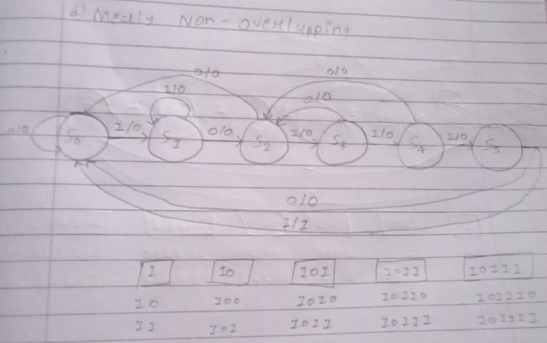 d) Mealy Non-overlapping
0/0 0/0
1/0 0/0
0/0 S0 1/0 S1 0/0 S2 1/0 S3 1/0 S4 1/0 S5
0/0
1/1
1 10 101 1011 10111
10 100 1010 10110 101110
11 101 1011 10111 101111